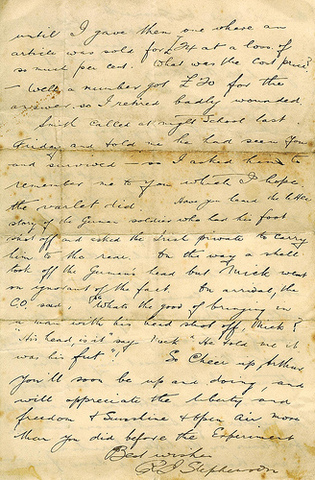 until I gave them one where an
article was sold for £24 at a loss of
so much per cent. What was the cost price?
— Well a number got £20 for the
answer, so I retired badly wounded.
Smith called at night School last
and told me he had seen you
and survived — so I asked him to
remember me to you which I hope
the varlet did. Have you heard the little
story of the German soldier who had his foot
shot off and asked the Irish private to carry
him to the rear. On the way a shell
took off the German's head but Mick went
on ignorant of the fact. On arrival, the
C.O. said "What's the good of bringing in
a man with his head shot off, Mick?
"His head, is it" say Mick "He told me it
was his foot",! So Cheer up, Arthur
You'll soon be up and doing, and
will appreciate the liberty and
freedom & Sunshine & Open Air more
than you did before the Experiment
Best wishes
R J Stephenson